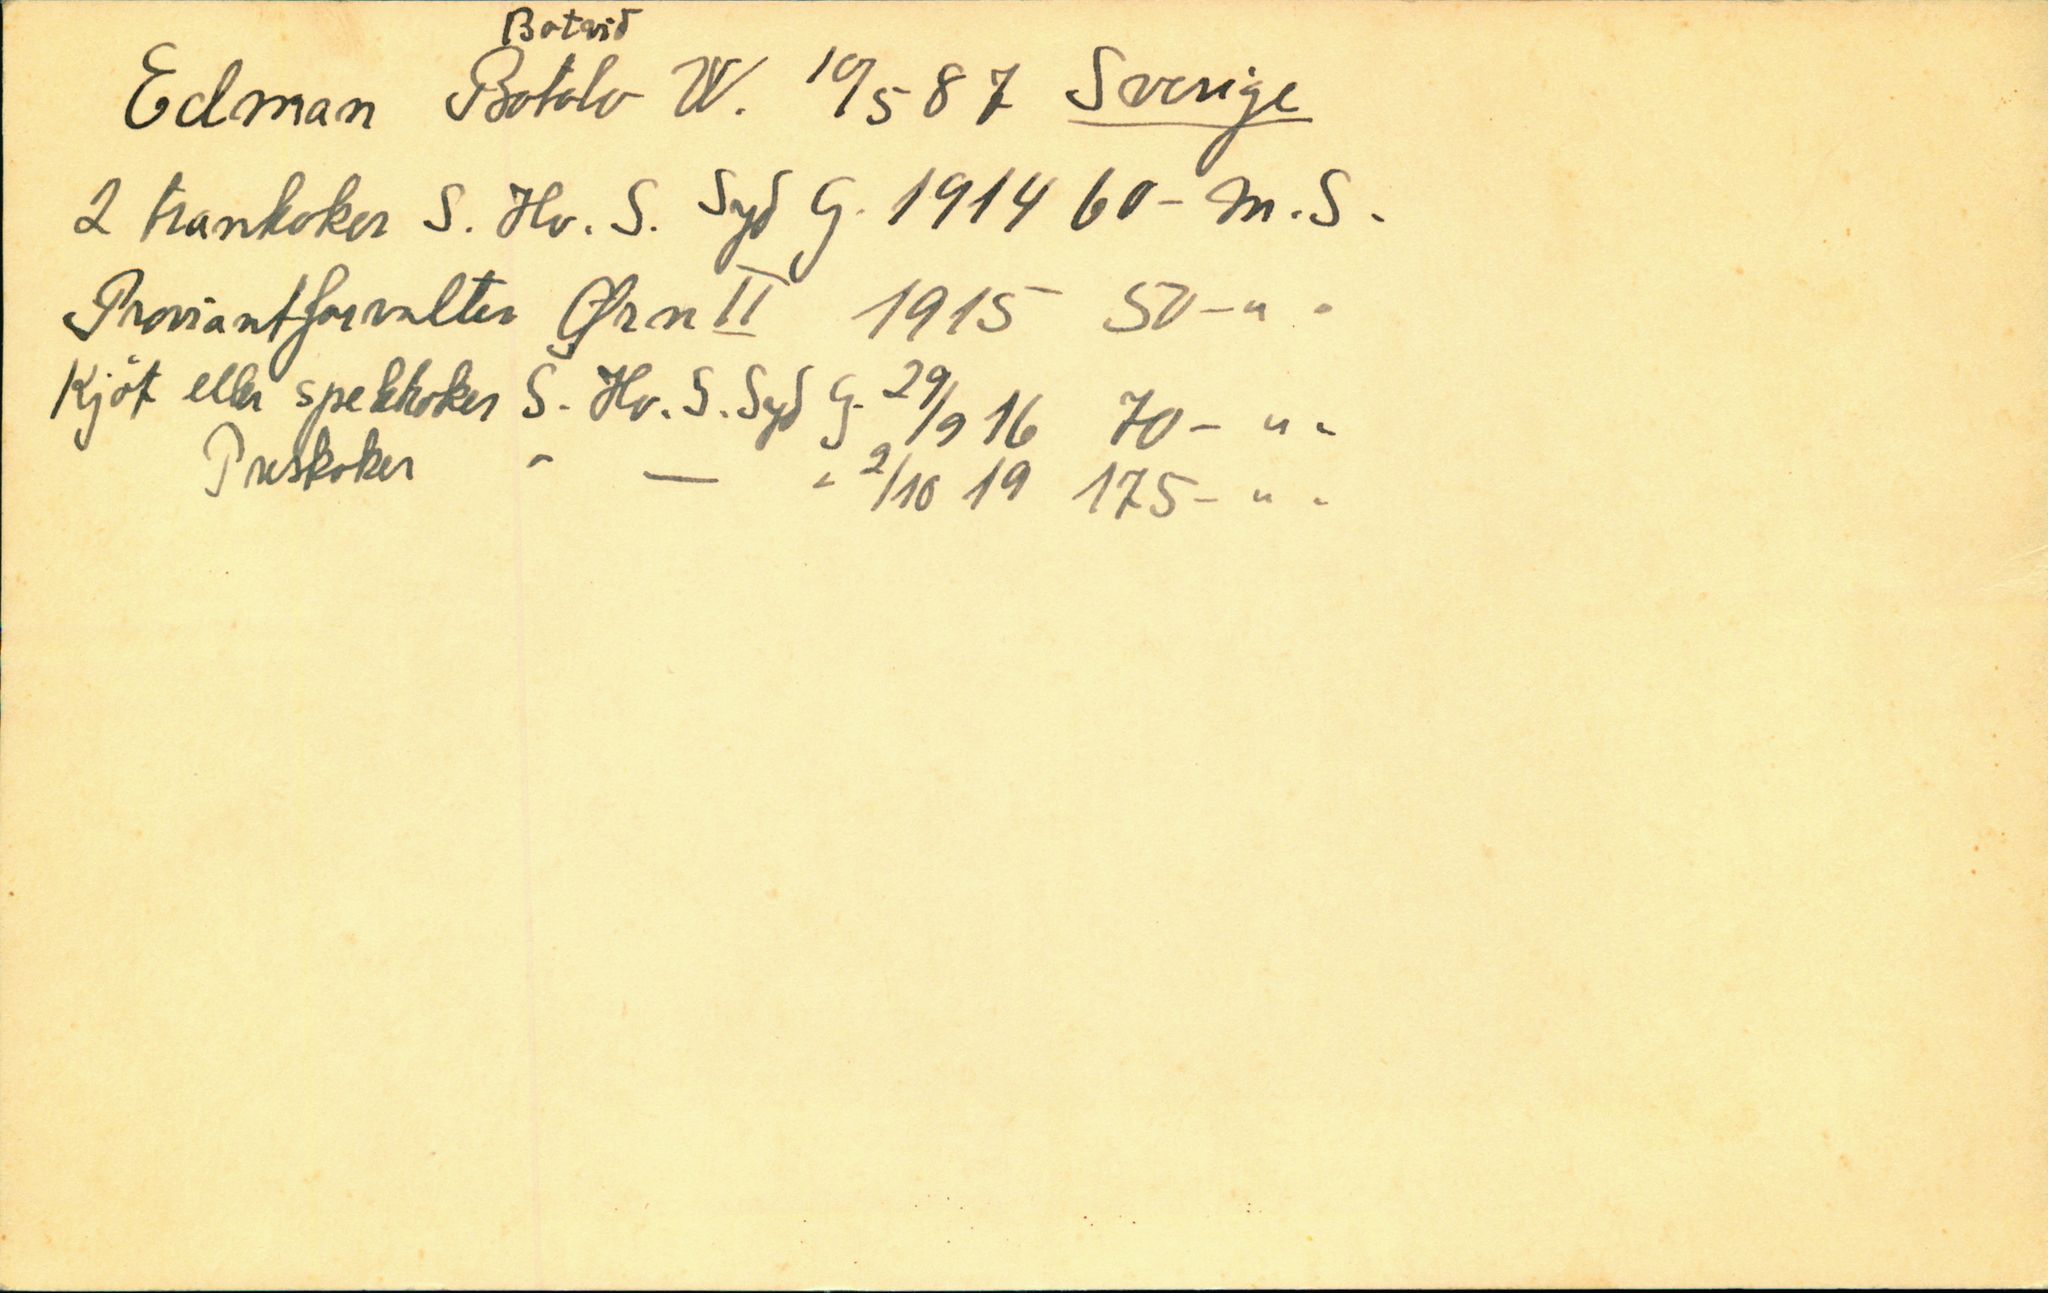 Botvid
Edman Botolv W. 10/5 87 Sverige
2 trankoker S. Hv. S. Syd G. 1914 60- m.S.
Proviantforvalter Ørn II 1915 50- " "
Kjöt eller spekkoker S. Hv. S. Syd G. 29/9 16 70- " "
Preskoker " — " 2/10 19 175- " "